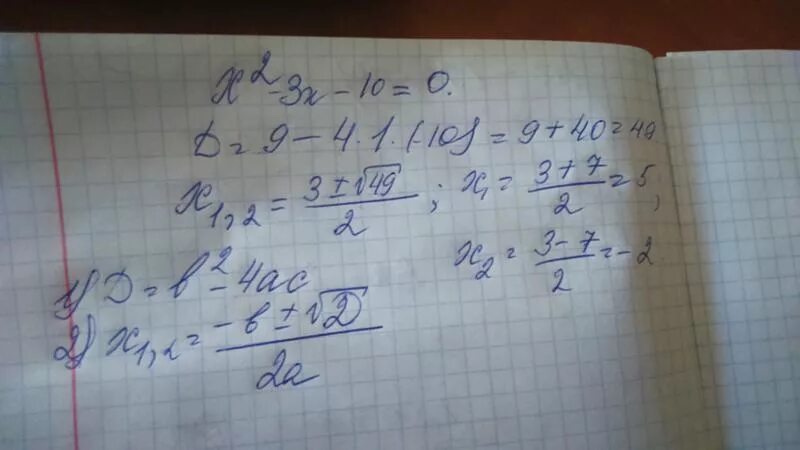 x² - 3x - 10 = 0.
D = 9 - 4 · 1 · (-10) = 9 + 40 = 49
x₁,₂ = (3 ± √49) / 2 ; x₁ = (3 + 7) / 2 = 5,
x₂ = (3 - 7) / 2 = -2
1) D = b² - 4ac
2) x₁,₂ = (-b ± √D) / 2a